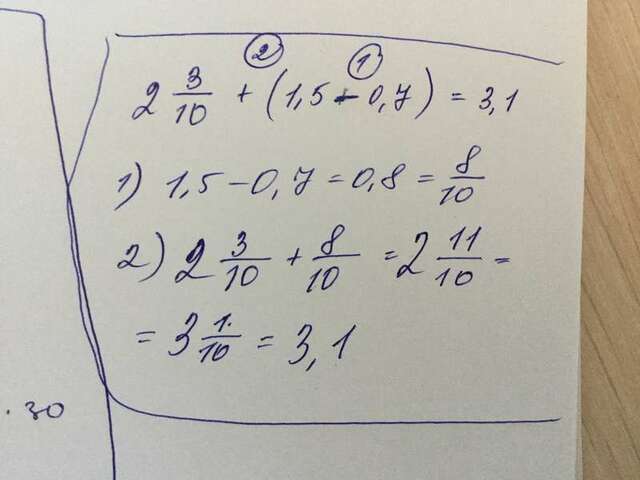 ② ①
2 3/10 + (1,5 - 0,7) = 3,1
1) 1,5 - 0,7 = 0,8 = 8/10
2) 2 3/10 + 8/10 = 2 11/10 =
= 3 1/10 = 3,1
. 30